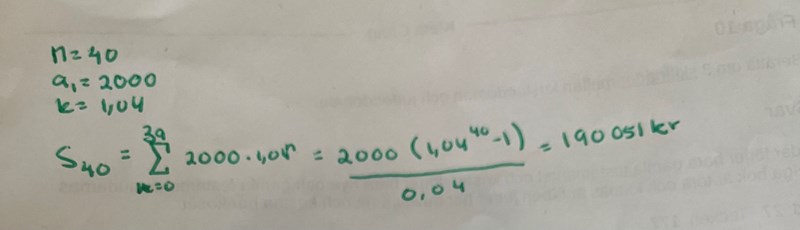 n=40
a₁=2000
k=1,04
S₄₀ = 39∑n=0 2000·1,04ⁿ = 2000 (1,04⁴⁰-1) / 0,04 = 190051 kr